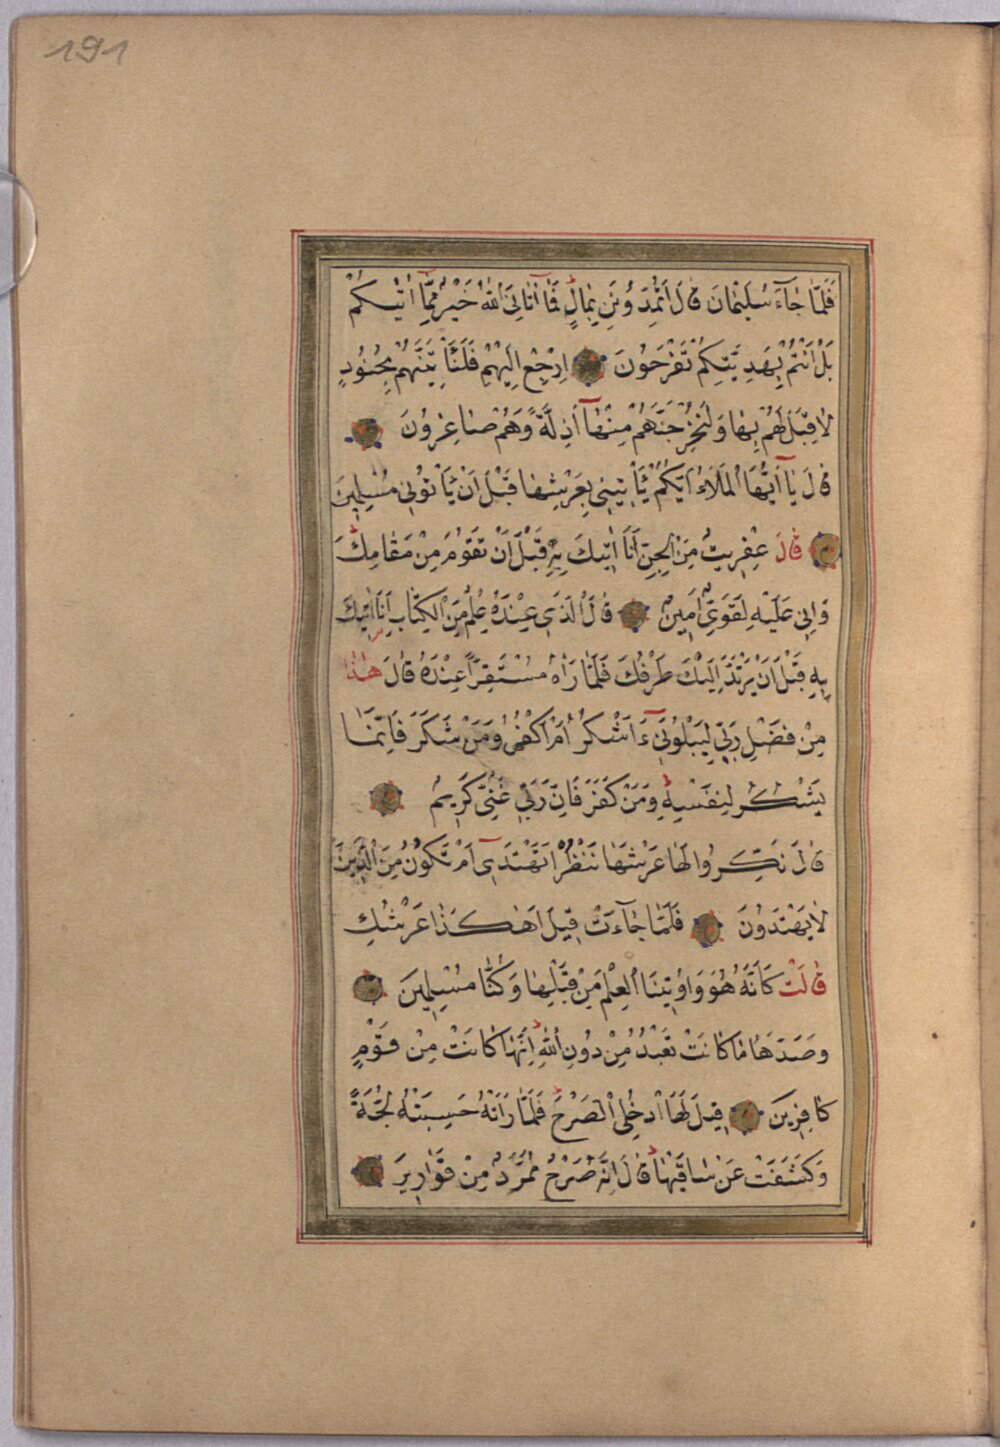 191
فَلَمَّا جَآءَ سُلَيْمَانَ قَالَ اَتُمِدُّونَنِ بِمَالٍ فَمَٓا اٰتَانِىَ اللّٰهُ خَيْرٌ مِمَّٓا اٰتٰيكُمْ
بَلْ اَنْتُمْ بِهَدِيَّتِكُمْ تَفْرَحُونَ اِرْجِعْ اِلَيْهِمْ فَلَنَأْتِيَنَّهُمْ بِجُنُودٍ
لَا قِبَلَ لَهُمْ بِهَا وَلَنُخْرِجَنَّهُمْ مِنْهَٓا اَذِلَّةً وَهُمْ صَاغِرُونَ
قَالَ يَٓا اَيُّهَا الْمَلَؤُا اَيُّكُمْ يَأْتِينِى بِعَرْشِهَا قَبْلَ اَنْ يَأْتُونِى مُسْلِمِينَ
قَالَ عِفْرِيتٌ مِنَ الْجِنِّ اَنَا اٰتِيكَ بِهِ قَبْلَ اَنْ تَقُومَ مِنْ مَقَامِكَ
وَاِنِّى عَلَيْهِ لَقَوِىٌّ اَمِينٌ قَالَ الَّذِى عِنْدَهُ عِلْمٌ مِنَ الْكِتَابِ اَنَا اٰتِيكَ
بِهِ قَبْلَ اَنْ يَرْتَدَّ اِلَيْكَ طَرْفُكَ فَلَمَّا رَاٰهُ مُسْتَقِرًّا عِنْدَهُ قَالَ هٰذَا
مِنْ فَضْلِ رَبِّى لِيَبْلُوَنِىٓ ءَاَشْكُرُ اَمْ اَكْفُرُ وَمَنْ شَكَرَ فَاِنَّمَا
يَشْكُرُ لِنَفْسِهِ وَمَنْ كَفَرَ فَاِنَّ رَبِّى غَنِىٌّ كَرِيمٌ
قَالَ نَكِّرُوا لَهَا عَرْشَهَا نَنْظُرْ اَتَهْتَدِىٓ اَمْ تَكُونُ مِنَ الَّذِينَ
لَا يَهْتَدُونَ فَلَمَّا جَآءَتْ قِيلَ اَهٰكَذَا عَرْشُكِ
قَالَتْ كَاَنَّهُ هُوَ وَاُوتِينَا الْعِلْمَ مِنْ قَبْلِهَا وَكُنَّا مُسْلِمِينَ
وَصَدَّهَا مَا كَانَتْ تَعْبُدُ مِنْ دُونِ اللّٰهِ اِنَّهَا كَانَتْ مِنْ قَوْمٍ
كَافِرِينَ قِيلَ لَهَا ادْخُلِى الصَّرْحَ فَلَمَّا رَاَتْهُ حَسِبَتْهُ لُجَّةً
وَكَشَفَتْ عَنْ سَاقَيْهَا قَالَ اِنَّهُ صَرْحٌ مُمَرَّدٌ مِنْ قَوَارِيرَ